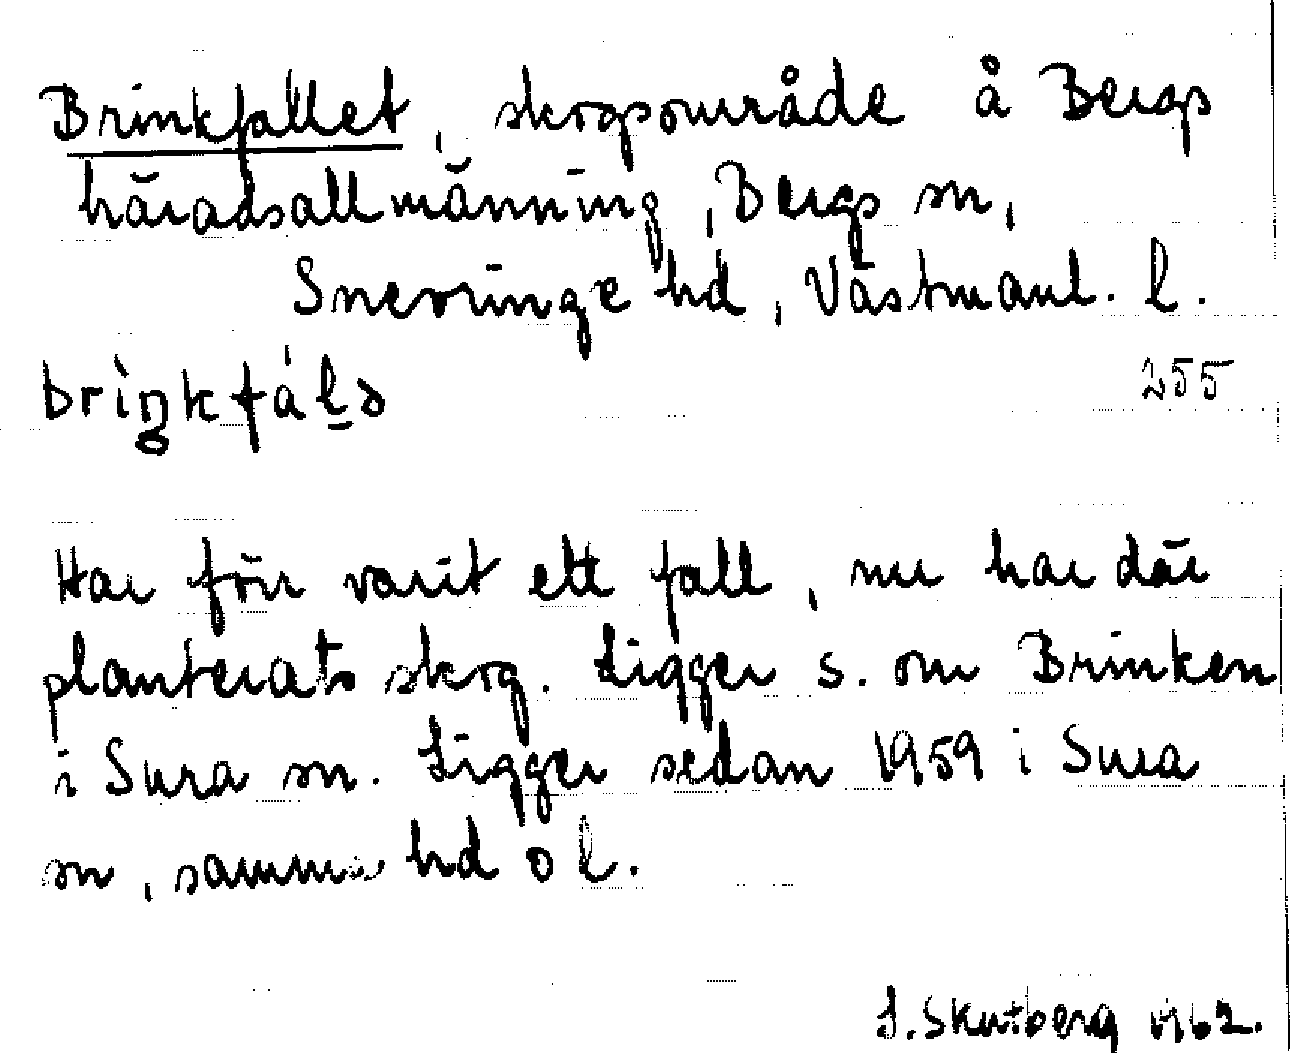 Brinkfallet, skogsområde å Bergs
häradsallmänning, Bergs sn,
Snevringe hd, Västmanl. l.
255
Har förr varit ett fall, nu har där
planterats skog. Ligger s. om Brinken
i Sura sn. Ligger sedan 1959 i Sura
sn, samma hd o l.
J. Skutberg 1962.